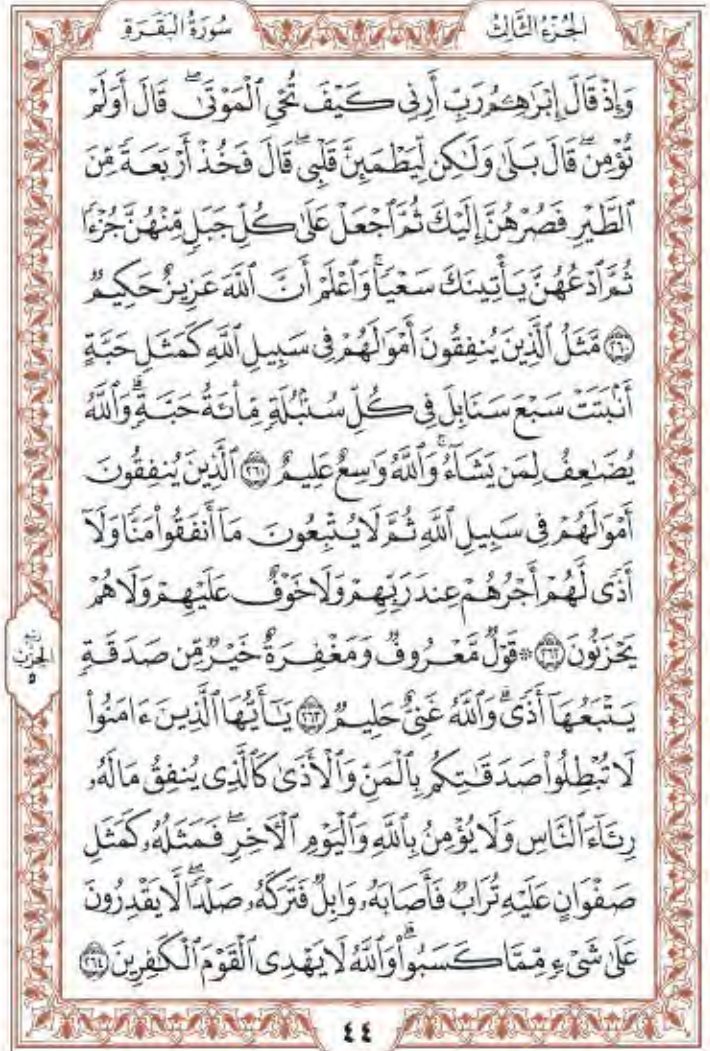 سُورَةُ الْبَقَرَةِ
الْجُزْءُ الثَّالِثُ
وَإِذْ قَالَ إِبْرَٰهِـۧمُ رَبِّ أَرِنِى كَيْفَ تُحْىِ ٱلْمَوْتَىٰ ۖ قَالَ أَوَلَمْ
تُؤْمِن ۖ قَالَ بَلَىٰ وَلَـٰكِن لِّيَطْمَئِنَّ قَلْبِى ۖ قَالَ فَخُذْ أَرْبَعَةً مِّنَ
ٱلطَّيْرِ فَصُرْهُنَّ إِلَيْكَ ثُمَّ ٱجْعَلْ عَلَىٰ كُلِّ جَبَلٍ مِّنْهُنَّ جُزْءًا
ثُمَّ ٱدْعُهُنَّ يَأْتِينَكَ سَعْيًا ۚ وَٱعْلَمْ أَنَّ ٱللَّهَ عَزِيزٌ حَكِيمٌ
٢٦٠ مَّثَلُ ٱلَّذِينَ يُنفِقُونَ أَمْوَٰلَهُمْ فِى سَبِيلِ ٱللَّهِ كَمَثَلِ حَبَّةٍ
أَنۢبَتَتْ سَبْعَ سَنَابِلَ فِى كُلِّ سُنۢبُلَةٍ مِّا۟ئَةُ حَبَّةٍ ۗ وَٱللَّهُ
يُضَـٰعِفُ لِمَن يَشَآءُ ۚ وَٱللَّهُ وَٰسِعٌ عَلِيمٌ ٢٦١ ٱلَّذِينَ يُنفِقُونَ
أَمْوَٰلَهُمْ فِى سَبِيلِ ٱللَّهِ ثُمَّ لَا يُتْبِعُونَ مَآ أَنفَقُوا۟ مَنًّا وَلَآ
أَذًى لَّهُمْ أَجْرُهُمْ عِندَ رَبِّهِمْ وَلَا خَوْفٌ عَلَيْهِمْ وَلَا هُمْ
يَحْزَنُونَ ٢٦٢ ۞ قَوْلٌ مَّعْرُوفٌ وَمَغْفِرَةٌ خَيْرٌ مِّن صَدَقَةٍ
رُبْع الحِزْب ٥
يَتْبَعُهَآ أَذًى ۗ وَٱللَّهُ غَنِىٌّ حَلِيمٌ ٢٦٣ يَـٰٓأَيُّهَا ٱلَّذِينَ ءَامَنُوا۟
لَا تُبْطِلُوا۟ صَدَقَـٰتِكُم بِٱلْمَنِّ وَٱلْأَذَىٰ كَٱلَّذِى يُنفِقُ مَالَهُۥ
رِئَآءَ ٱلنَّاسِ وَلَا يُؤْمِنُ بِٱللَّهِ وَٱلْيَوْمِ ٱلْـَٔاخِرِ ۖ فَمَثَلُهُۥ كَمَثَلِ
صَفْوَانٍ عَلَيْهِ تُرَابٌ فَأَصَابَهُۥ وَابِلٌ فَتَرَكَهُۥ صَلْدًا ۖ لَّا يَقْدِرُونَ
عَلَىٰ شَىْءٍ مِّمَّا كَسَبُوا۟ ۗ وَٱللَّهُ لَا يَهْدِى ٱلْقَوْمَ ٱلْكَـٰفِرِينَ ٢٦٤
٤٤